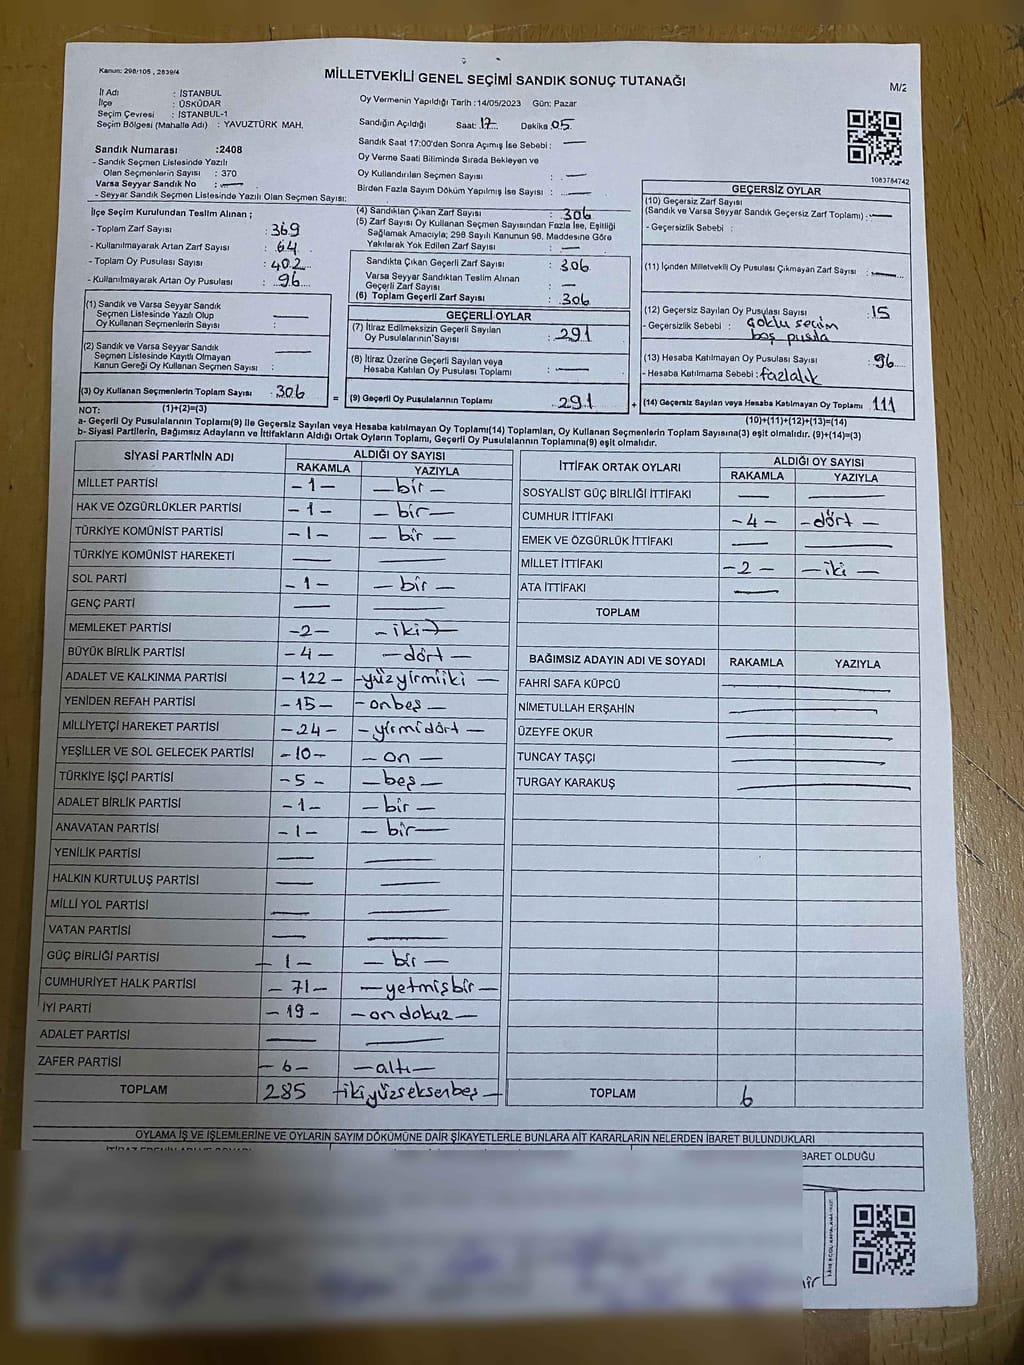 Kanun: 298/105 , 2839/4
MİLLETVEKİLİ GENEL SEÇİMİ SANDIK SONUÇ TUTANAĞI
M/2
İl Adı : İSTANBUL
İlçe : ÜSKÜDAR
Seçim Çevresi : İSTANBUL-1
Seçim Bölgesi (Mahalle Adı) : YAVUZTÜRK MAH.
Oy Vermenin Yapıldığı Tarih :14/05/2023 Gün: Pazar
Sandığın Açıldığı Saat: 17 Dakika 05
Sandık Saat 17:00'den Sonra Açımış İse Sebebi : —
Oy Verme Saati Bitiminde Sırada Bekleyen ve
Oy Kullandırılan Seçmen Sayısı : —
Birden Fazla Sayım Döküm Yapılmış İse Sayısı : —
Sandık Numarası :2408
- Sandık Seçmen Listesinde Yazılı
Olan Seçmenlerin Sayısı : 370
Varsa Seyyar Sandık No : —
- Seyyar Sandık Seçmen Listesinde Yazılı Olan Seçmen Sayısı:
1083784742
İlçe Seçim Kurulundan Teslim Alınan ;
- Toplam Zarf Sayısı : 369
- Kullanılmayarak Artan Zarf Sayısı : 64
- Toplam Oy Pusulası Sayısı : 402
- Kullanılmayarak Artan Oy Pusulası : 96
(1) Sandık ve Varsa Seyyar Sandık
Seçmen Listesinde Yazılı Olup
Oy Kullanan Seçmenlerin Sayısı : —
(2) Sandık ve Varsa Seyyar Sandık
Seçmen Listesinde Kayıtlı Olmayan
Kanun Gereği Oy Kullanan Seçmen Sayısı : —
(3) Oy Kullanan Seçmenlerin Toplam Sayısı : 306
(4) Sandıktan Çıkan Zarf Sayısı : 306
(5) Zarf Sayısı Oy Kullanan Seçmen Sayısından Fazla İse, Eşitliği
Sağlamak Amacıyla; 298 Sayılı Kanunun 98. Maddesine Göre
Yakılarak Yok Edilen Zarf Sayısı : —
Sandıkta Çıkan Geçerli Zarf Sayısı : 306
Varsa Seyyar Sandıktan Teslim Alınan
Geçerli Zarf Sayısı : —
(6) Toplam Geçerli Zarf Sayısı : 306
GEÇERLİ OYLAR
(7) İtiraz Edilmeksizin Geçerli Sayılan
Oy Pusulalarının Sayısı : 291
(8) İtiraz Üzerine Geçerli Sayılan veya
Hesaba Katılan Oy Pusulası Toplamı : —
= (9) Geçerli Oy Pusulalarının Toplamı : 291
GEÇERSİZ OYLAR
(10) Geçersiz Zarf Sayısı
(Sandık ve Varsa Seyyar Sandık Geçersiz Zarf Toplamı) : —
- Geçersizlik Sebebi :
(11) İçinden Milletvekili Oy Pusulası Çıkmayan Zarf Sayısı : —
(12) Geçersiz Sayılan Oy Pusulası Sayısı : 15
- Geçersizlik Sebebi : çoklu seçim
boş pusla
(13) Hesaba Katılmayan Oy Pusulası Sayısı : 96
- Hesaba Katılmama Sebebi : fazlalık
+ (14) Geçersiz Sayılan veya Hesaba Katılmayan Oy Toplamı : 111
NOT: (1)+(2)=(3) (10)+(11)+(12)+(13)=(14)
a- Geçerli Oy Pusulalarının Toplamı(9) ile Geçersiz Sayılan veya Hesaba katılmayan Oy Toplamı(14) Toplamları, Oy Kullanan Seçmenlerin Toplam Sayısına(3) eşit olmalıdır. (9)+(14)=(3)
b- Siyasi Partilerin, Bağımsız Adayların ve İttifakların Aldığı Ortak Oyların Toplamı, Geçerli Oy Pusulalarının Toplamına(9) eşit olmalıdır.
SİYASİ PARTİNİN ADI ALDIĞI OY SAYISI
RAKAMLA YAZIYLA
MİLLET PARTİSİ -1- -bir-
HAK VE ÖZGÜRLÜKLER PARTİSİ -1- -bir-
TÜRKİYE KOMÜNİST PARTİSİ -1- -bir-
TÜRKİYE KOMÜNİST HAREKETİ — —
SOL PARTİ -1- -bir-
GENÇ PARTİ — —
MEMLEKET PARTİSİ -2- -iki-
BÜYÜK BİRLİK PARTİSİ -4- -dört-
ADALET VE KALKINMA PARTİSİ -122- -yüzyirmiiki-
YENİDEN REFAH PARTİSİ -15- -onbeş-
MİLLİYETÇİ HAREKET PARTİSİ -24- -yirmidört-
YEŞİLLER VE SOL GELECEK PARTİSİ -10- -on-
TÜRKİYE İŞÇİ PARTİSİ -5- -beş-
ADALET BİRLİK PARTİSİ -1- -bir-
ANAVATAN PARTİSİ -1- -bir-
YENİLİK PARTİSİ — —
HALKIN KURTULUŞ PARTİSİ — —
MİLLİ YOL PARTİSİ — —
VATAN PARTİSİ — —
GÜÇ BİRLİĞİ PARTİSİ -1- -bir-
CUMHURİYET HALK PARTİSİ -71- -yetmişbir-
İYİ PARTİ -19- -ondokuz-
ADALET PARTİSİ — —
ZAFER PARTİSİ -6- -altı-
TOPLAM 285 -ikiyüzseksenbeş-
İTTİFAK ORTAK OYLARI ALDIĞI OY SAYISI
RAKAMLA YAZIYLA
SOSYALİST GÜÇ BİRLİĞİ İTTİFAKI — —
CUMHUR İTTİFAKI -4- -dört-
EMEK VE ÖZGÜRLÜK İTTİFAKI — —
MİLLET İTTİFAKI -2- -iki-
ATA İTTİFAKI —
TOPLAM
BAĞIMSIZ ADAYIN ADI VE SOYADI RAKAMLA YAZIYLA
FAHRİ SAFA KÜPCÜ —
NİMETULLAH ERŞAHİN —
ÜZEYFE OKUR —
TUNCAY TAŞÇI —
TURGAY KARAKUŞ —
TOPLAM 6
OYLAMA İŞ VE İŞLEMLERİNE VE OYLARIN SAYIM DÖKÜMÜNE DAİR ŞİKAYETLERLE BUNLARA AİT KARARLARIN NELERDEN İBARET BULUNDUKLARI
BARET OLDUĞU